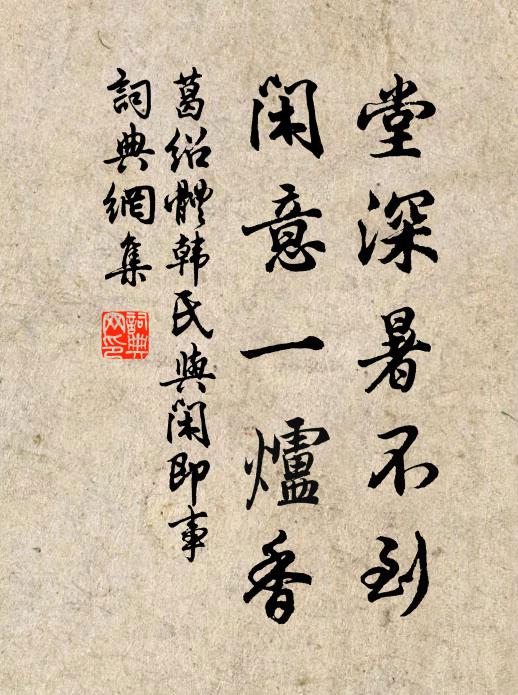 堂深暑不到
閑意一爐香
葛紹體韩氏與閑即事
詞典網集
詞典网印